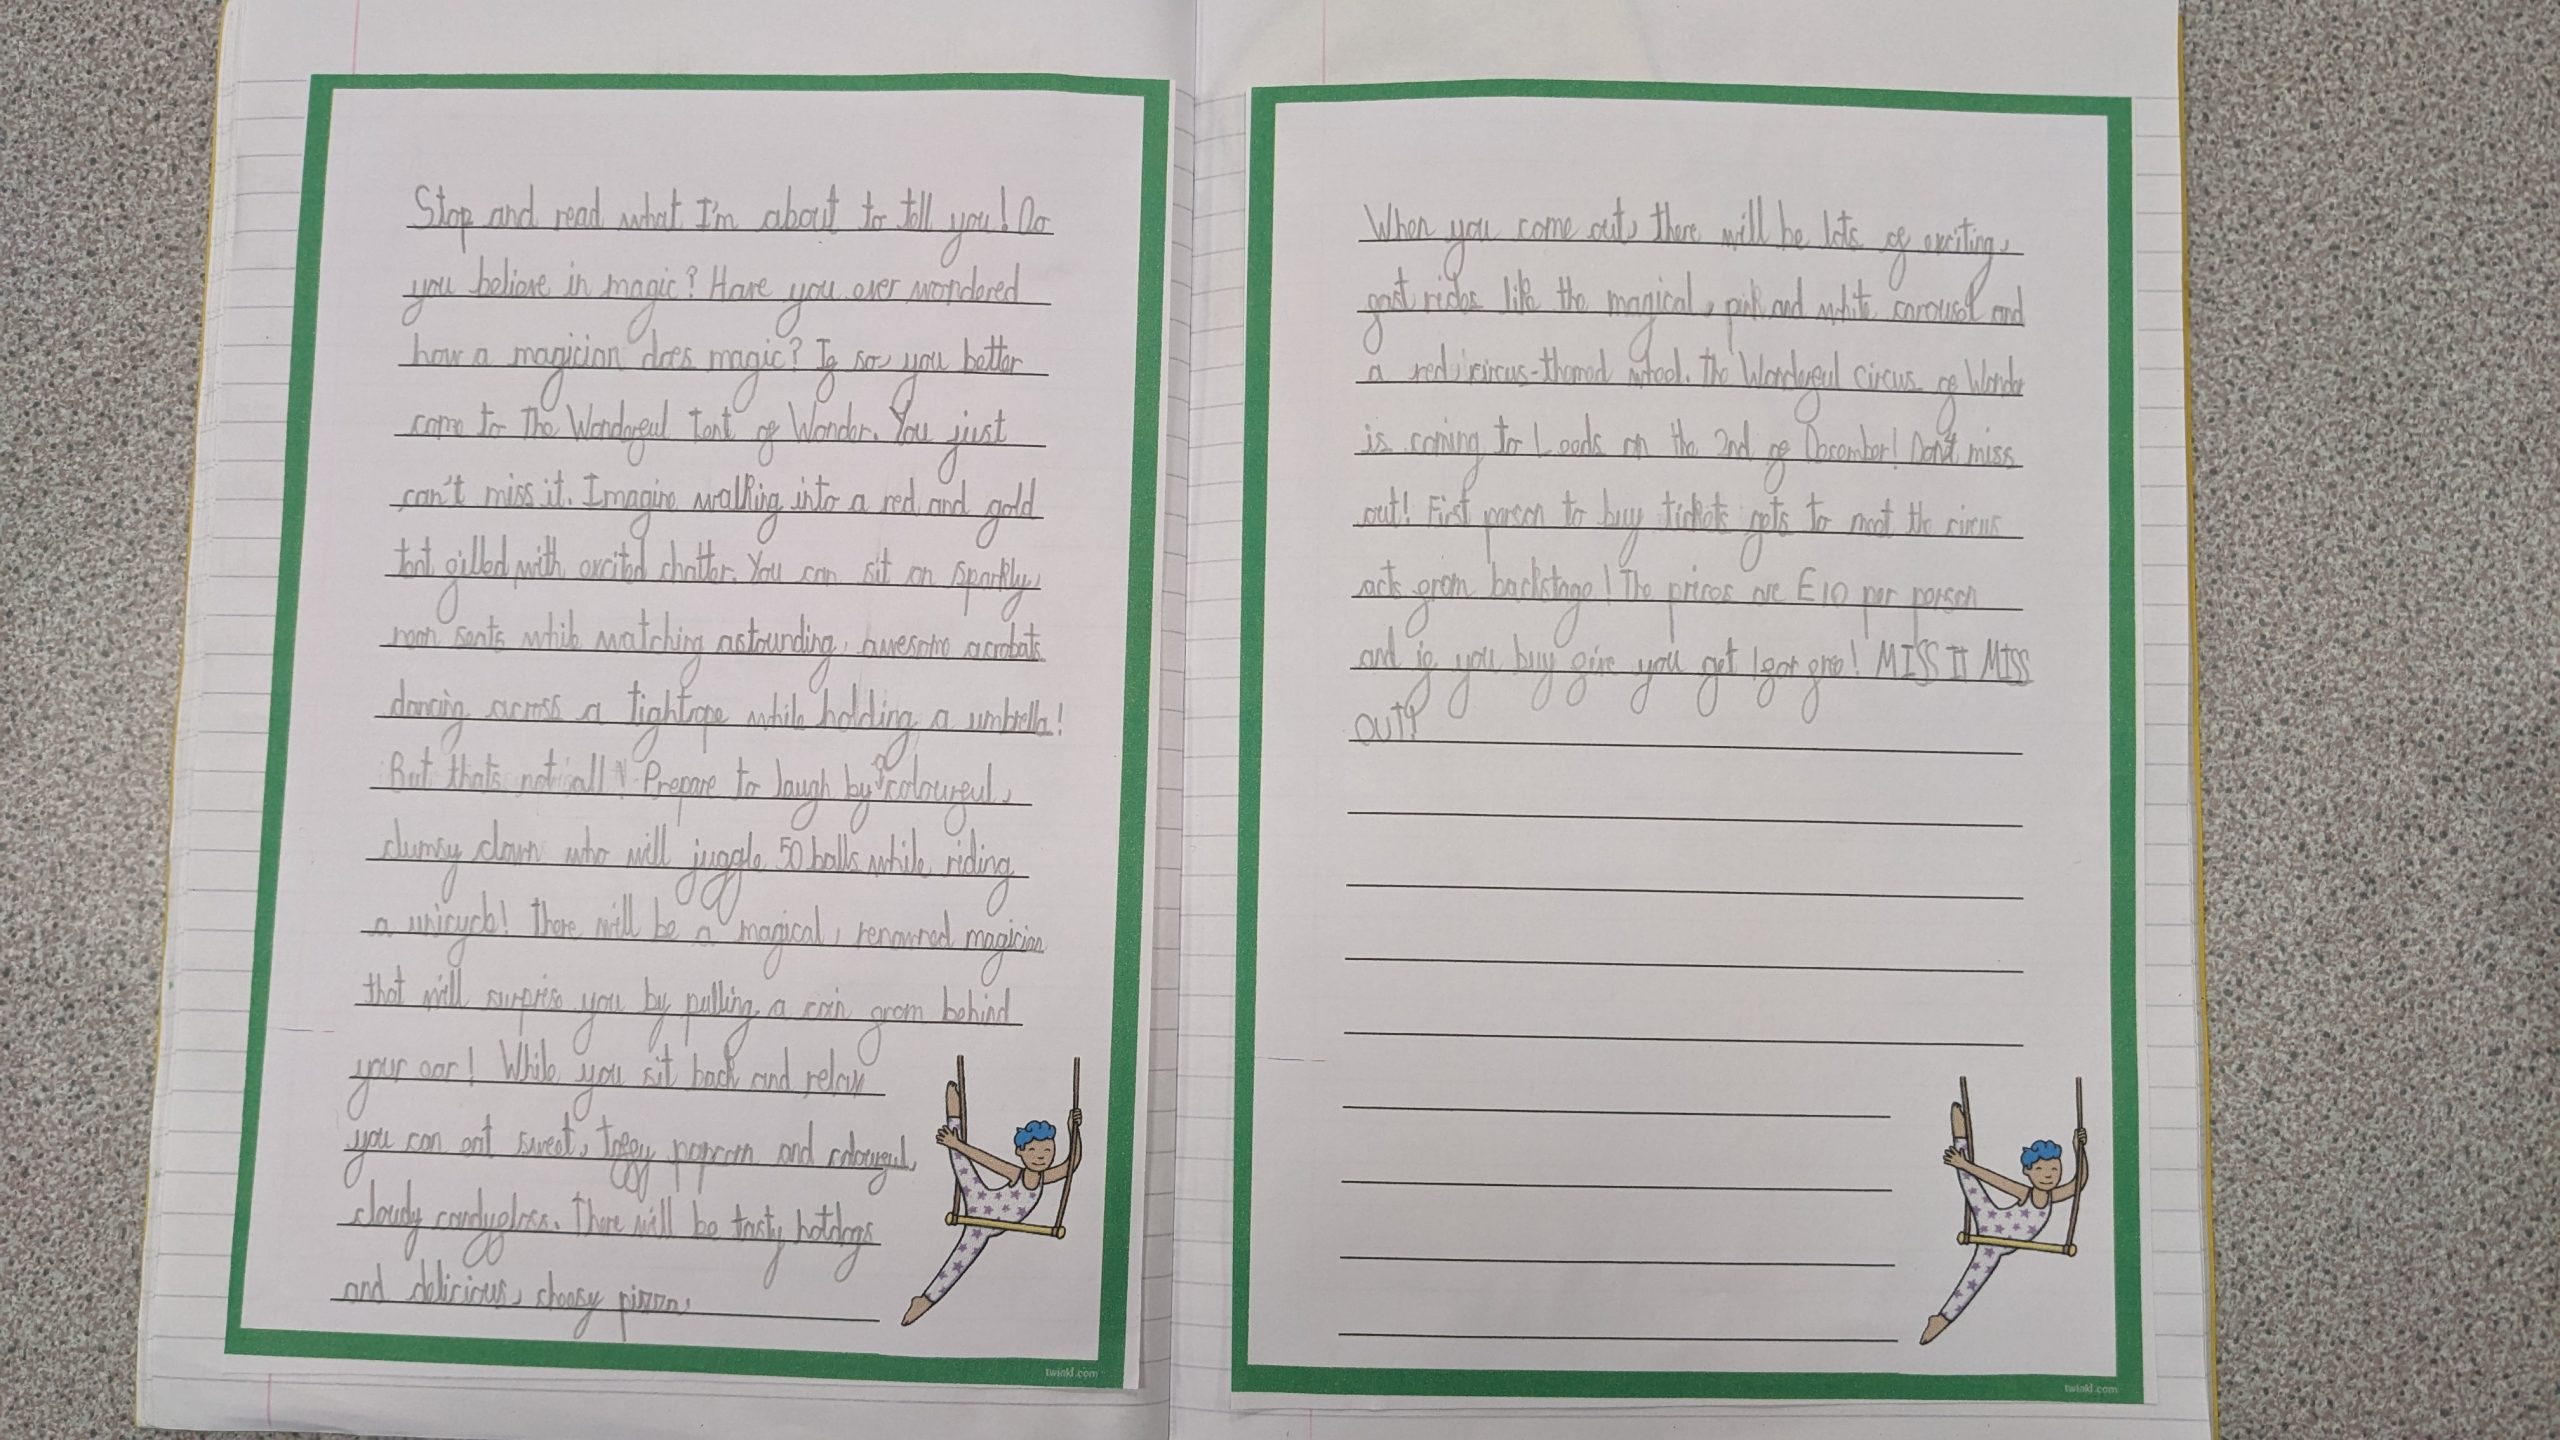 Stop and read what I'm about to tell you! Do
you believe in magic? Have you ever wondered
how a magician does magic? If so, you better
come to The Wonderful Tent of Wonder. You just
can't miss it. Imagine walking into a red and gold
tent filled with excited chatter. You can sit on sparkly,
neon seats while watching astounding, awesome acrobats
dancing across a tightrope while holding a umbrella!
But thats not all! Prepare to laugh by a colourful,
clumsy clown who will juggle 50 balls while riding
a unicycle! There will be a magical, renowned magician
that will surprise you by pulling a coin from behind
your ear! While you sit back and relax
you can eat sweet, toffy popcorn and colourful,
cloudy candyfloss. There will be tasty hotdogs
and delicious, cheesy pizza.
twinkl.com
When you come out, there will be lots of exciting,
fast rides like the magical, pink and white carousel and
a red, circus-themed wheel. The Wonderful Circus of Wonder
is coming to Leeds on the 2nd of December! Don't miss
out! First person to buy tickets gets to meet the circus
acts from backstage! The prices are £10 per person
and if you buy five you get 1 for free! MISS IT MISS
OUT!
twinkl.com